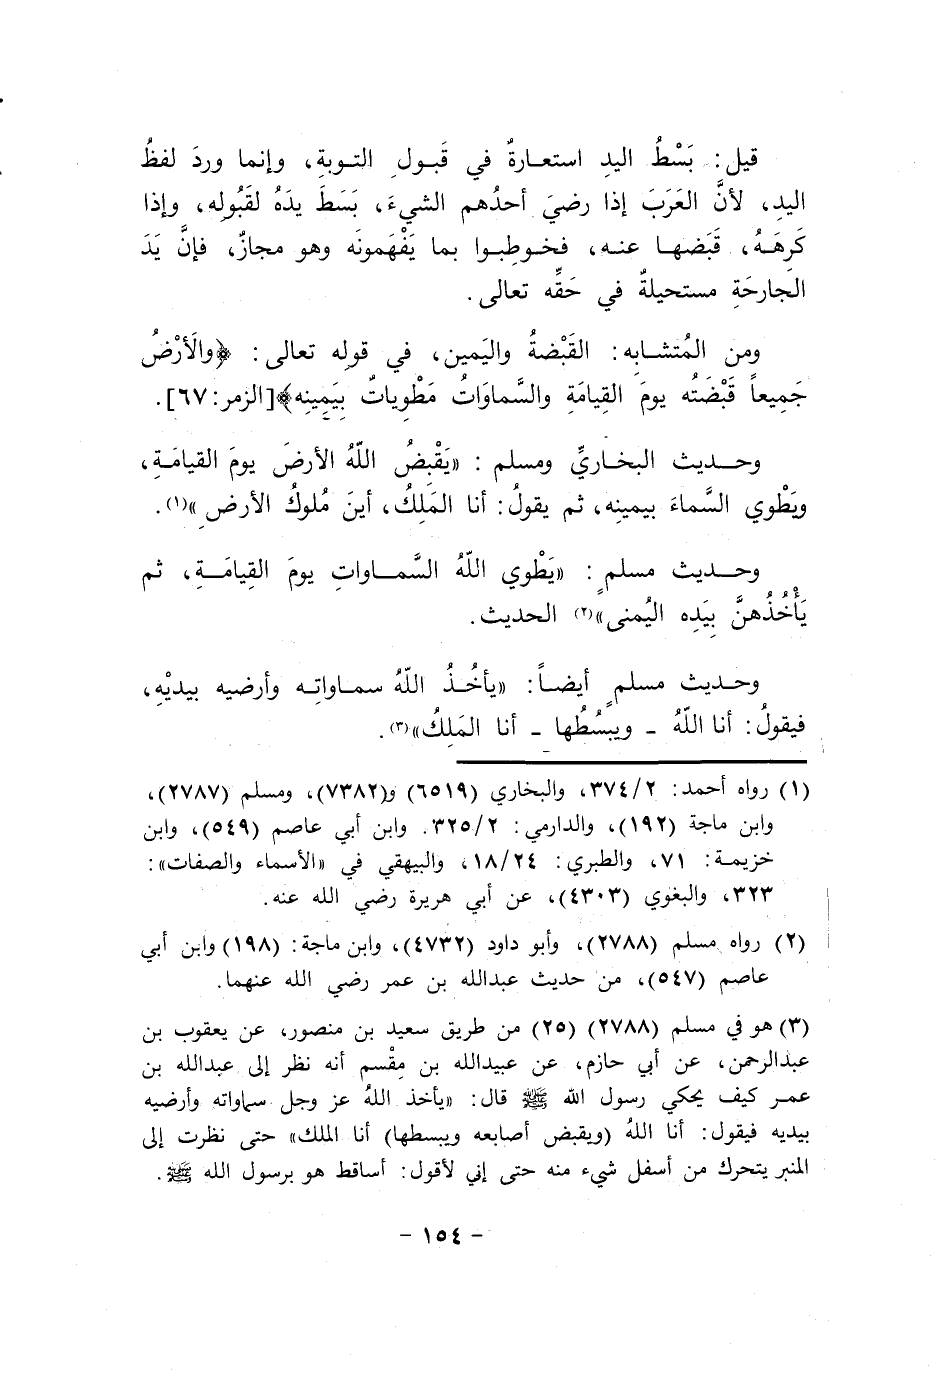 قيل: بَسْطُ اليدِ استعارةٌ في قَبولِ التوبةِ، وإنما وردَ لفظُ
اليدِ، لأنَّ العَرَبَ إذا رضيَ أحدُهم الشيءَ، بَسَطَ يدَهُ لقَبُولِه، وإذا
كَرِهَهُ، قَبَضَها عنه، فخوطِبوا بما يَفْهَمونَه وهو مجازٌ، فإنَّ يَدَ
الجَارِحَةِ مستحيلةٌ في حَقِّه تعالى.
ومن المُتشابِه: القَبْضةُ واليَمين، في قولِه تعالى: ﴿والَأرْضُ
جَمِيعاً قَبْضَتُه يومَ القِيامَةِ والسَّماوَاتُ مَطْوِياتٌ بِيَمِينِه﴾[الزمر:٦٧].
وحديث البخاريِّ ومسلم : «يَقْبِضُ اللّهُ الأرضَ يومَ القيامَةِ،
ويَطْوي السَّماءَ بيمينِه، ثم يقولُ: أنا المَلِكُ، أينَ مُلوكُ الأرضِ»(١).
وحديث مسلمٍ : «يَطْوي اللّهُ السَّماواتِ يومَ القِيامَةِ، ثم
يَأْخُذُهنَّ بِيَدِه اليُمنى»(٢) الحديث.
وحديث مسلمٍ أيضاً: «يأخُذُ اللّهُ سماواتِه وأرضيه بيديْهِ،
فيقولُ: أنا اللّهُ - ويبسُطُها - أنا المَلِكُ»(٣).
(١) رواه أحمد: ٣٧٤/٢، والبخاري (٦٥١٩) و(٧٣٨٢)، ومسلم (٢٧٨٧)،
وابن ماجة (١٩٢)، والدارمي: ٣٢٥/٢. وابن أبي عاصم (٥٤٩)، وابن
خزيمة: ٧١، والطبري: ١٨/٢٤، والبيهقي في «الأسماء والصفات»:
٣٢٣، والبغوي (٤٣٠٣)، عن أبي هريرة رضي الله عنه.
(٢) رواه مسلم (٢٧٨٨)، وأبو داود (٤٧٣٢)، وابن ماجة: (١٩٨) وابن أبي
عاصم (٥٤٧)، من حديث عبدالله بن عمر رضي الله عنهما.
(٣) هو في مسلم (٢٧٨٨) (٢٥) من طريق سعيد بن منصور، عن يعقوب بن
عبدالرحمن، عن أبي حازم، عن عبيدالله بن مِقْسم أنه نظر إلى عبدالله بن
عمر كيف يحكي رسول الله ﷺ قال: «يأخذ اللهُ عز وجل سماواته وأرضيه
بيديه فيقول: أنا اللهُ (ويقبض أصابعه ويبسطها) أنا الملك» حتى نظرت إلى
المنبر يتحرك من أسفل شيء منه حتى إني لأقول: أساقط هو برسول الله ﷺ.
- ١٥٤ -